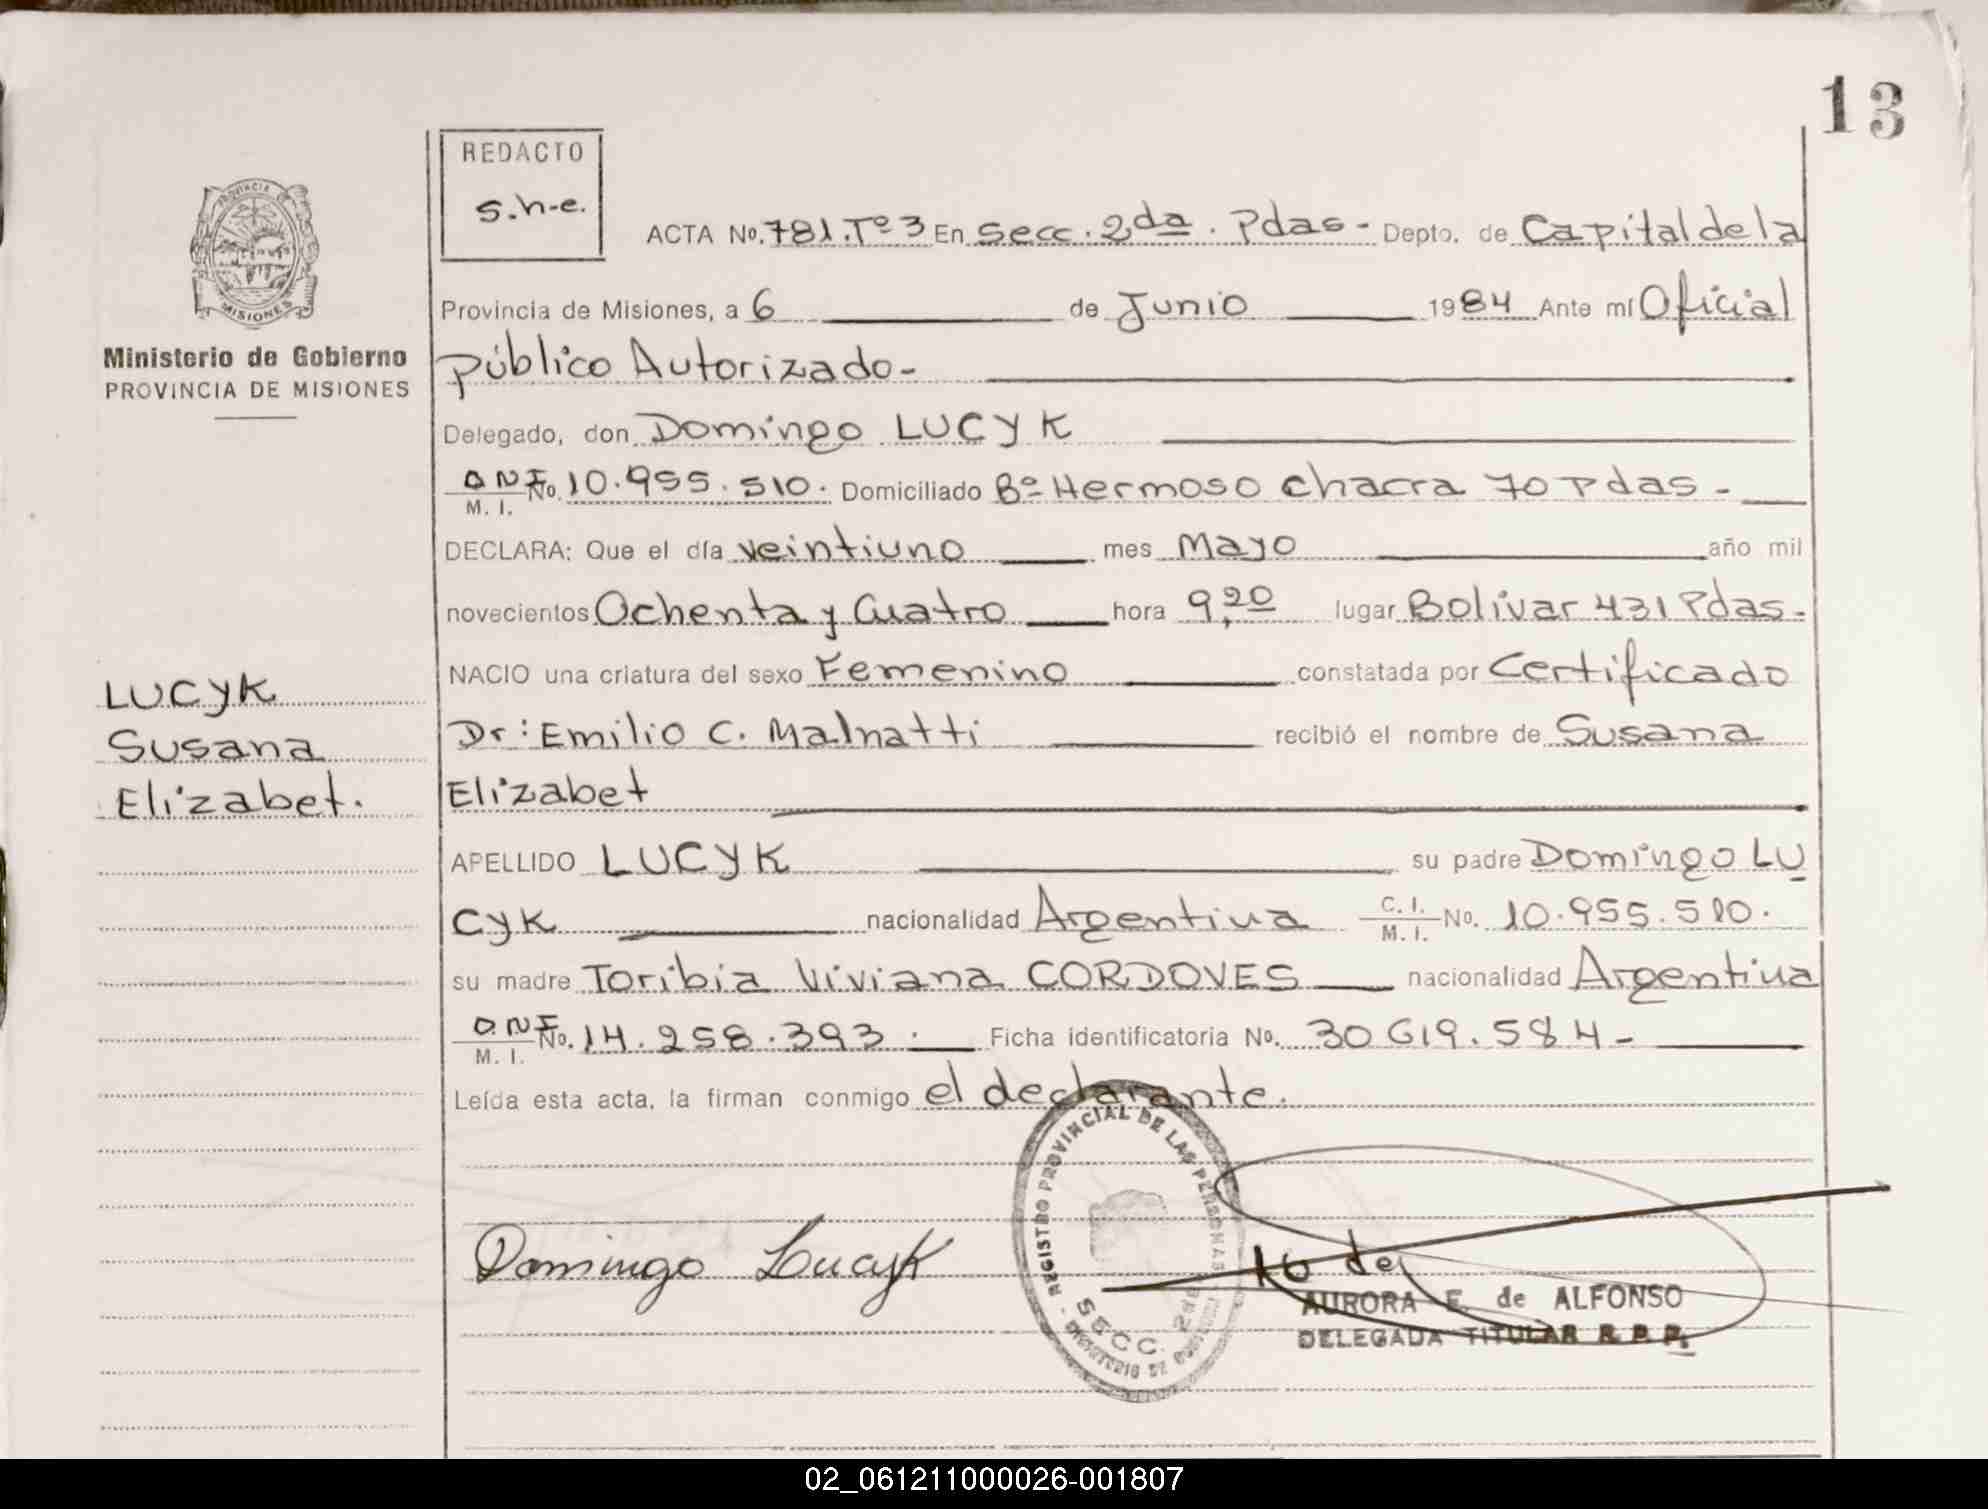 13
REDACTO
s.h-e.
ACTA No. 781.Tº3 En Secc. 2da. Pdas- Depto. de Capital de la
Provincia de Misiones, a 6 de Junio 1984 Ante mí Oficial
Público Autorizado-
Delegado, don Domingo LUCYK
D.N.I. No. 10.955.510. Domiciliado Bº Hermoso chacra 70 Pdas-
M. I.
DECLARA: Que el día veintiuno mes Mayo año mil
novecientos Ochenta y Cuatro hora 9,20 lugar Bolivar 431 Pdas-
NACIO una criatura del sexo Femenino constatada por Certificado
Dr: Emilio C. Malnatti recibió el nombre de Susana
Elizabet
APELLIDO LUCYK su padre Domingo LU
CYK nacionalidad Argentina C. I. No. 10.955.510.
M. I.
su madre Toribia Viviana CORDOVES nacionalidad Argentina
D.N.I. No. 14.258.393. Ficha identificatoria No. 30619.584-
M. I.
Leída esta acta, la firman conmigo el declarante.
PROVINCIA
MISIONES
Ministerio de Gobierno
PROVINCIA DE MISIONES
LUCYK
Susana
Elizabet.
Domingo Lucyk
REGISTRO PROVINCIAL DE LAS PERSONAS
SECC. 2da
AURORA E. de ALFONSO
DELEGADA TITULAR R. P. P.
02_061211000026-001807